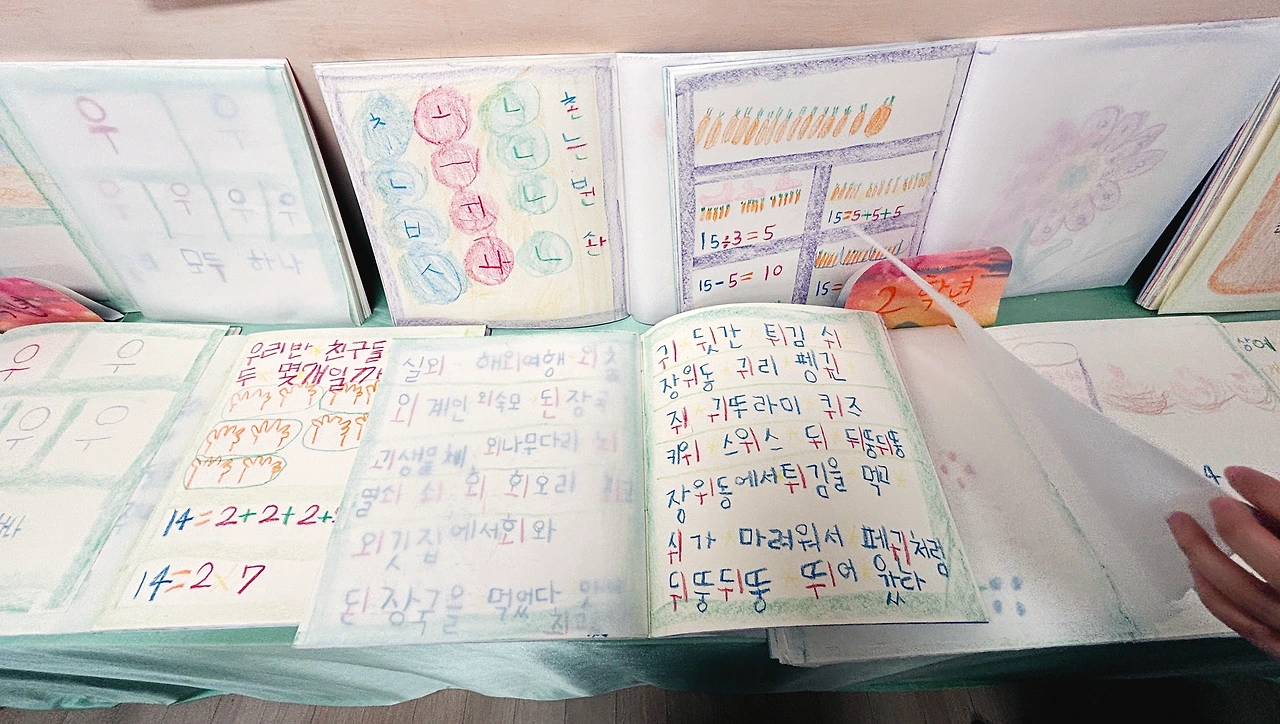 우 우
우 우 우 우
모두 하나
ㅊ ㅗ ㄴ 촌
ㄴ ㅡ ㄴ 는
ㅂ ㅓ ㄴ 번
ㅅ ㅘ ㄴ 솬
15÷3=5
15=5+5+5
15-5=10
15=
2학년
우 우
우 우
우리반 친구들
두 몇개일까
14=2+2+2+
14=2×7
실외 해외여행 외
외계인 외숙모 된장국
괴생물체 외나무다리 뇌
열쇠 쇠 회 회오리
외갓집에서 회와
된장국을 먹었다
귀 뒷간 튀김 쉬
장위동 귀리 펭귄
쥐 귀뚜라미 퀴즈
키위 스위스 뒤 뒤뚱뒤뚱
장위동에서 튀김을 먹고
쉬가 마려워서 펭귄처럼
뒤뚱뒤뚱 뛰어 갔다
상어
4